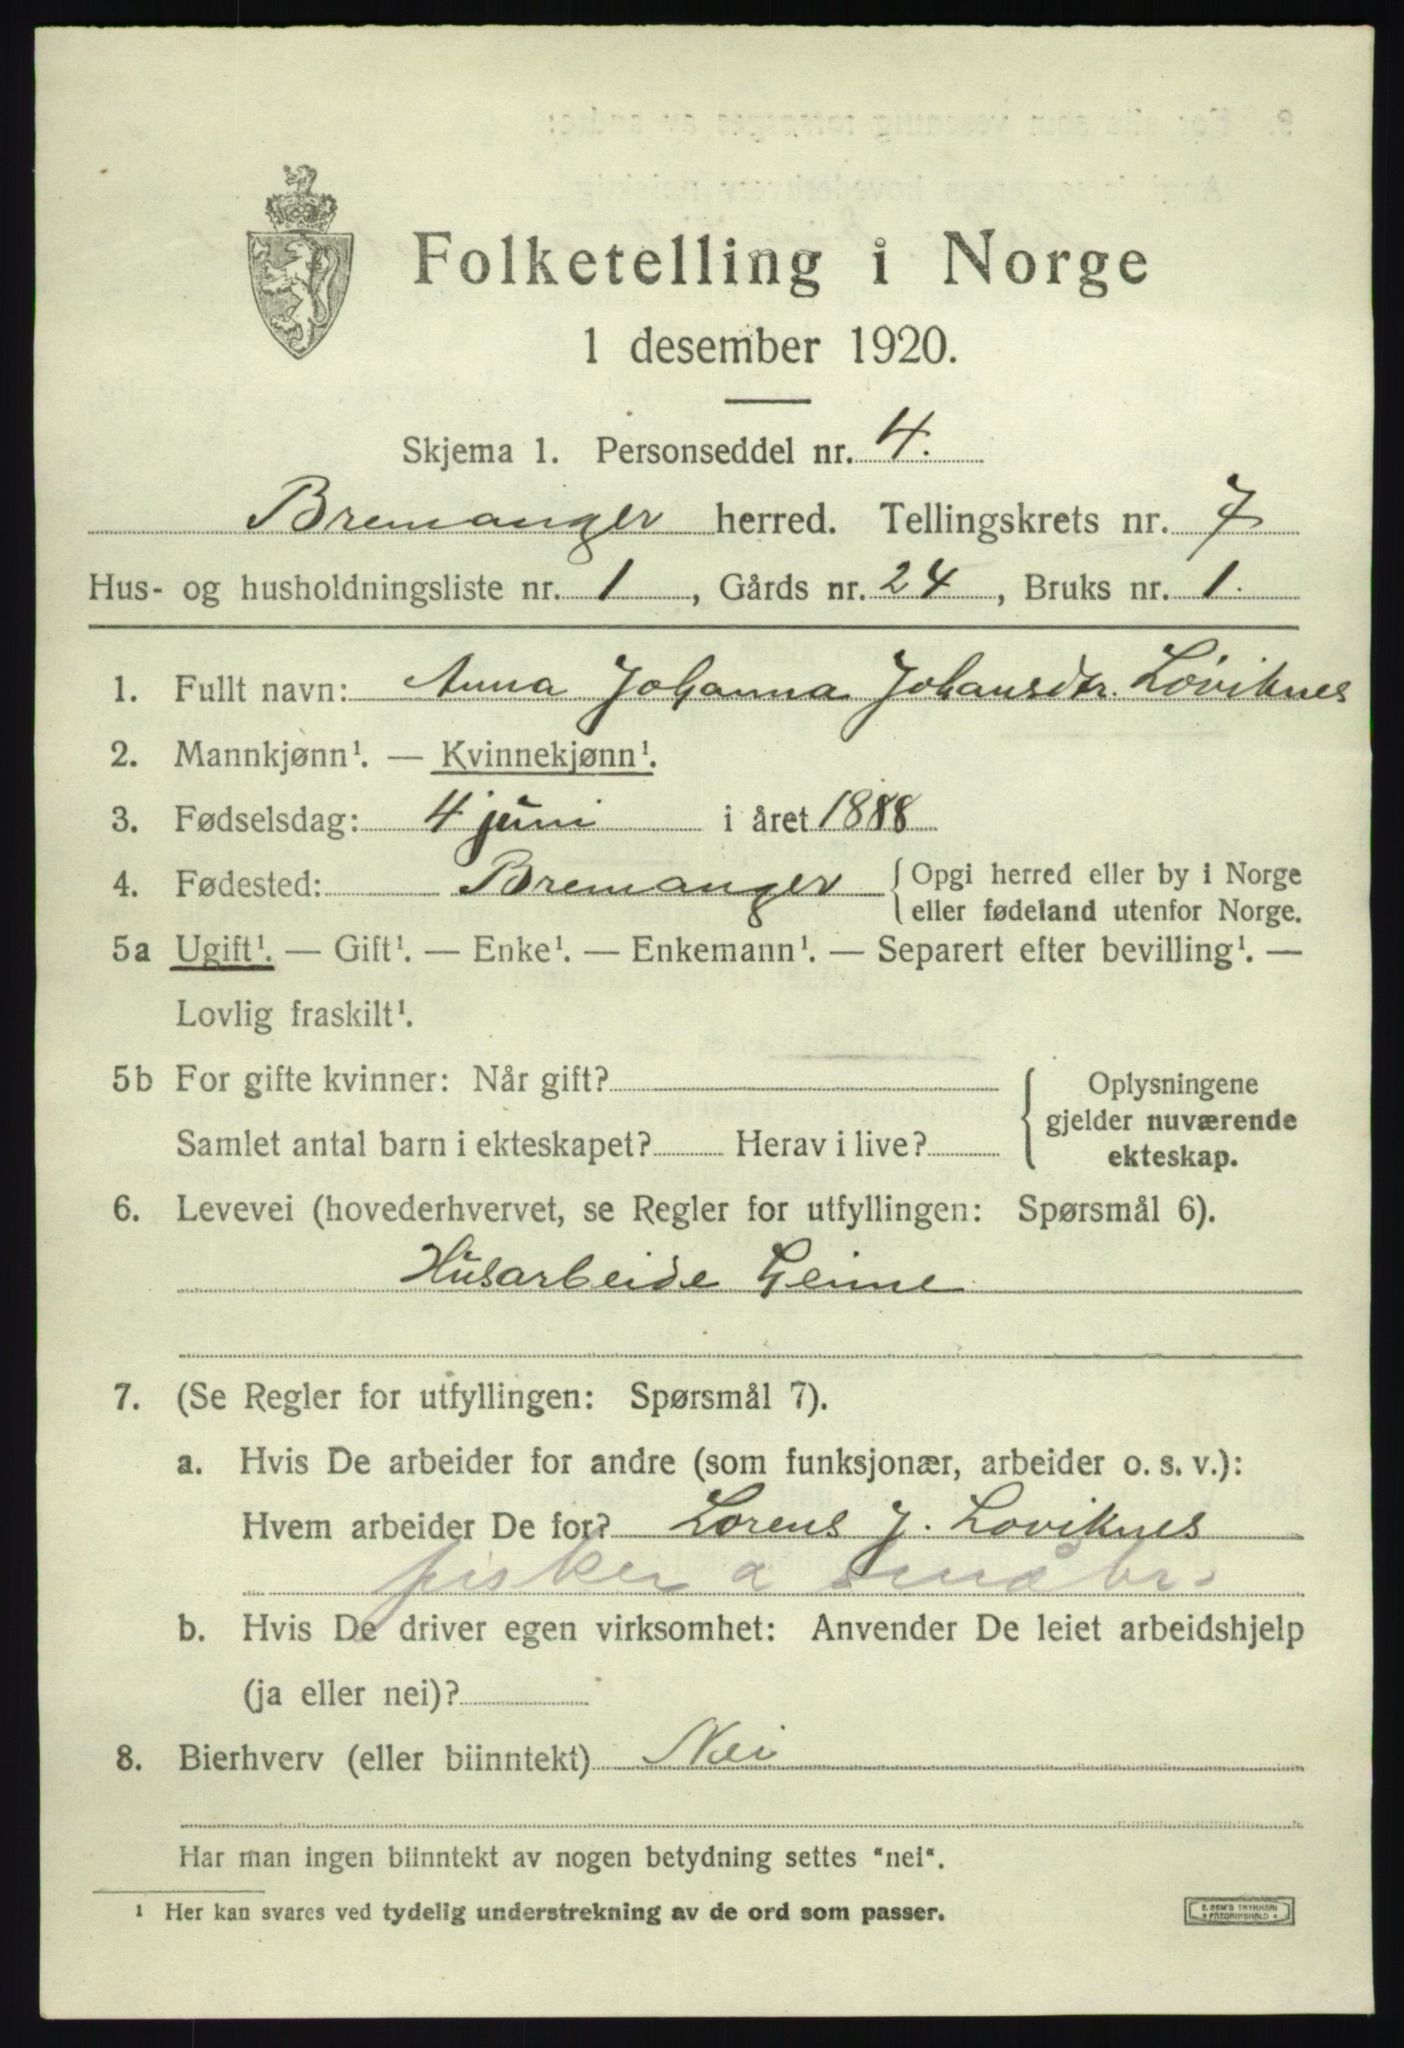 Folketelling i Norge
1 desember 1920.
Skjema 1. Personseddel nr. 4.
Bremanger herred. Tellingskrets nr. 7
Hus- og husholdningsliste nr. 1, Gårds nr. 24, Bruks nr. 1.
1. Fullt navn: Anna Johanna Johansdtr. Løviknes
2. Mannkjønn¹. — Kvinnekjønn¹.
3. Fødselsdag: 4 juni i året 1888
4. Fødested: Bremanger { Opgi herred eller by i Norge
eller fødeland utenfor Norge.
5a Ugift¹. — Gift¹. — Enke¹. — Enkemann¹. — Separert efter bevilling¹. —
Lovlig fraskilt¹.
5b For gifte kvinner: Når gift? { Oplysningene
gjelder nuværende
Samlet antal barn i ekteskapet? Herav i live?
ekteskap.
6. Levevei (hovederhvervet, se Regler for utfyllingen: Spørsmål 6).
Husarbeide heime
7. (Se Regler for utfyllingen: Spørsmål 7).
a. Hvis De arbeider for andre (som funksjonær, arbeider o. s. v.):
Hvem arbeider De for? Lorens J. Loviknes
fisker a småbr.
b. Hvis De driver egen virksomhet: Anvender De leiet arbeidshjelp
(ja eller nei)?
8. Bierhverv (eller biinntekt) Nei
Har man ingen biinntekt av nogen betydning settes "nei".
¹ Her kan svares ved tydelig understrekning av de ord som passer.
E. SEM'S TRYKKERI
* FREDRIKSHALD *